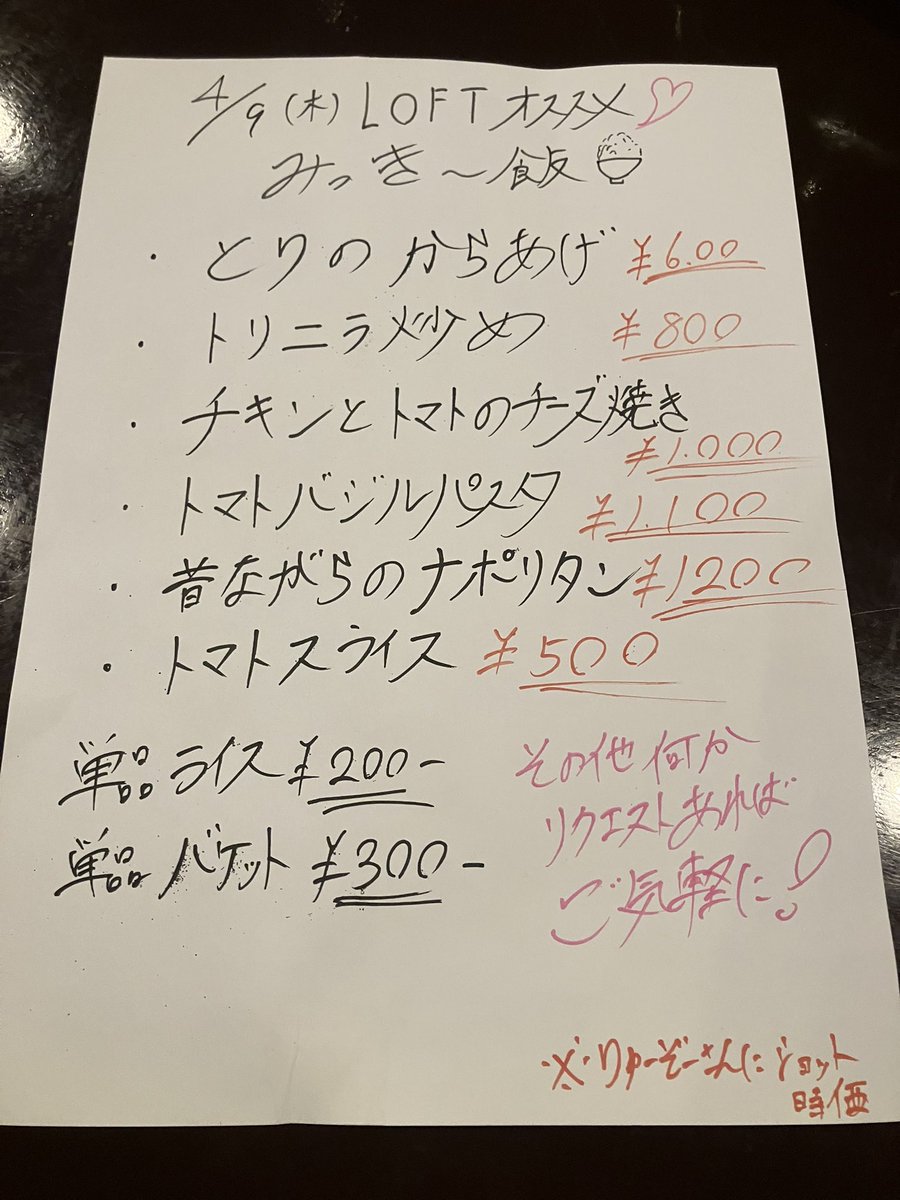 4/9 (木) LOFT オススメ
みっき〜飯
・とりのからあげ ¥6.00
・トリニラ炒め ¥800
・チキンとトマトのチーズ焼き
¥1.000
・トマトバジルパスタ ¥1.100
・昔ながらのナポリタン ¥1200
・トマトスライス ¥500
単品 ライス ¥200-
単品 バケット ¥300-
その他 何か
リクエストあれば
ご気軽に!
※りゅーぞーさんにショット
時価